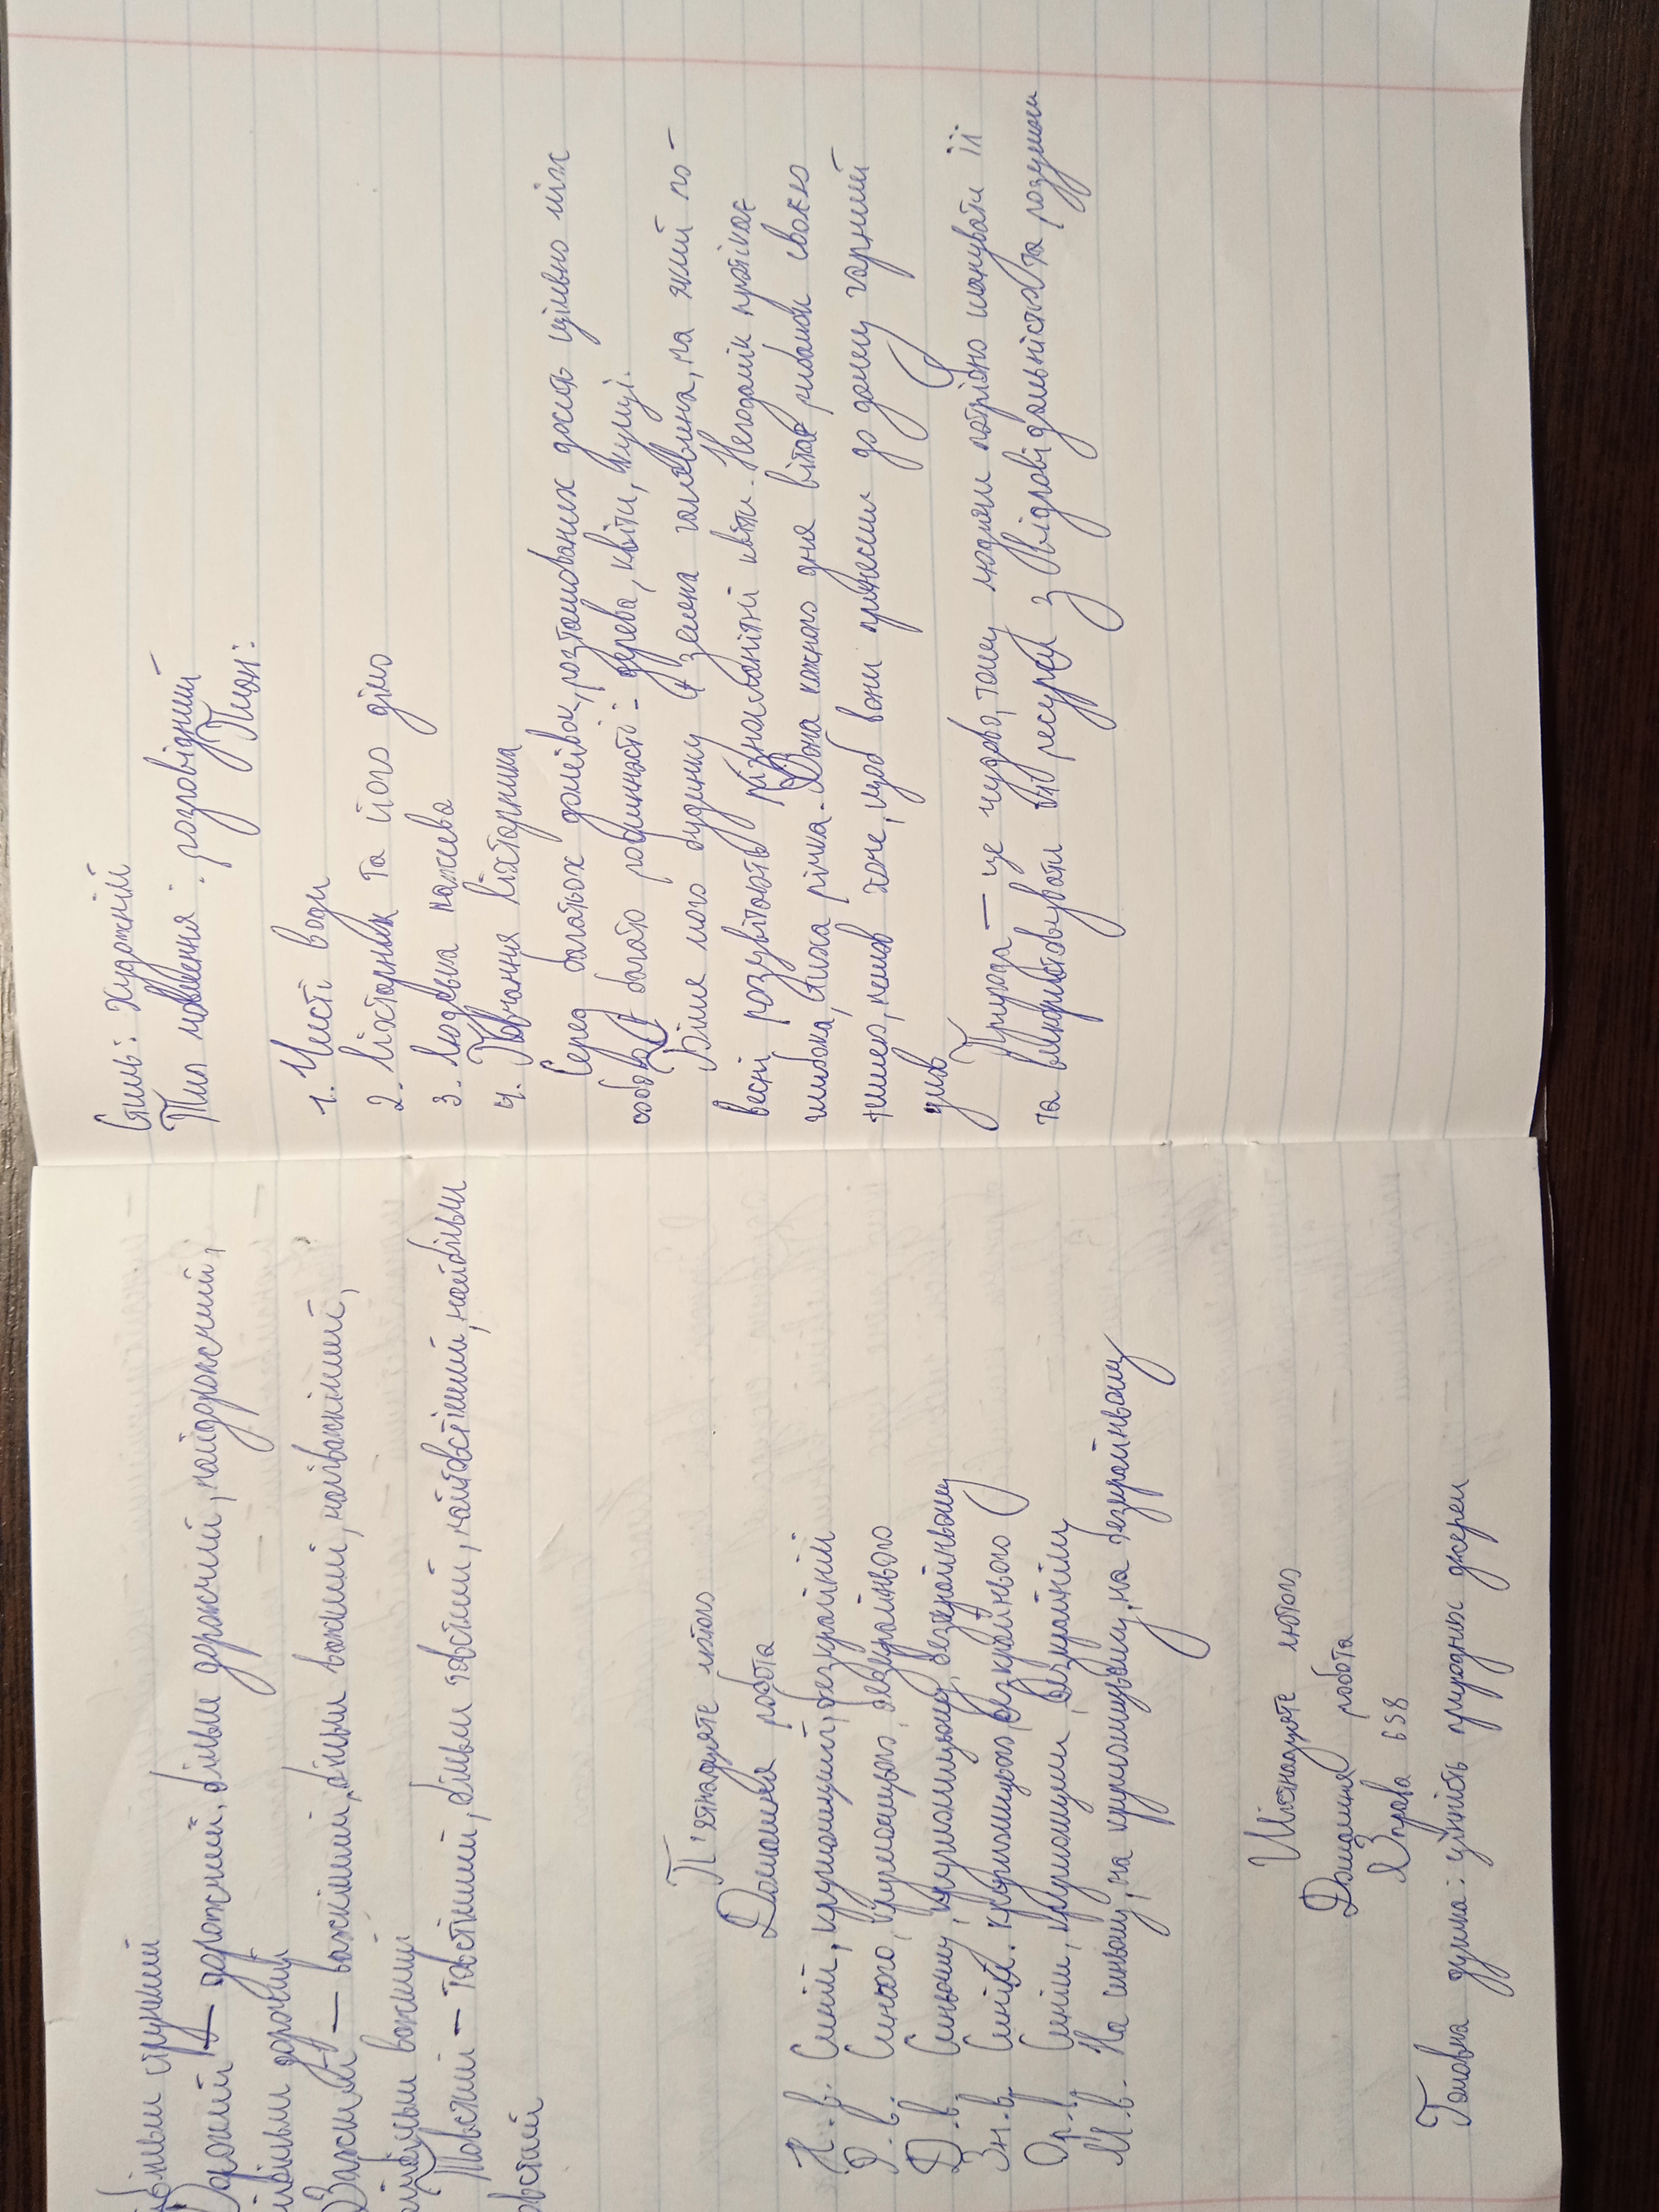 більш стрункий
Дорогий — дорожчий, більш дорожчий, найдорожчий,
найбільш дорожчий
Важкий — важкіший, більш важкий, найважкіший,
найбільш важкий
Товстий — товстіший, більш товстий, найтовстіший, найбільш
товстий
П'ятнадцяте лютого
Домашня робота
Н. в. Синій, кругловидий, безкраїй
Р. в. Синього, безкрайнього
Д. в. Синьому, безкрайньому
Зн. в. безкрайнього
Ор. в. Синім, безкраїм
М. в. На синьому, на безкрайньому
Шістнадцяте лютого
Домашня робота
Вправа 658
Головна думка: цінність природних джерел
Стиль: художній
Тип мовлення: розповідний
План:
1. Чисті води
2. Ліхтарник та його діло
3. Людська пожева
4. Повчання ліхтарника
Серед багатьох домівок, розташованих досить щільно між
собою, є багато рослинності: дерева, квіти, кущі.
Біля мого будинку є зелена галявина, на якій по-
весні розцвітають різноманітні квіти. Неподалік протікає
глибока, тиха річка. Вона кожного дня вітає рибалок своєю
тишею, немов хоче, щоб вони принесли до дому гарний
улов
Природа — це чудово, тому людям потрібно шанувати її
та використовувати її ресурси з відповідальністю та розумом